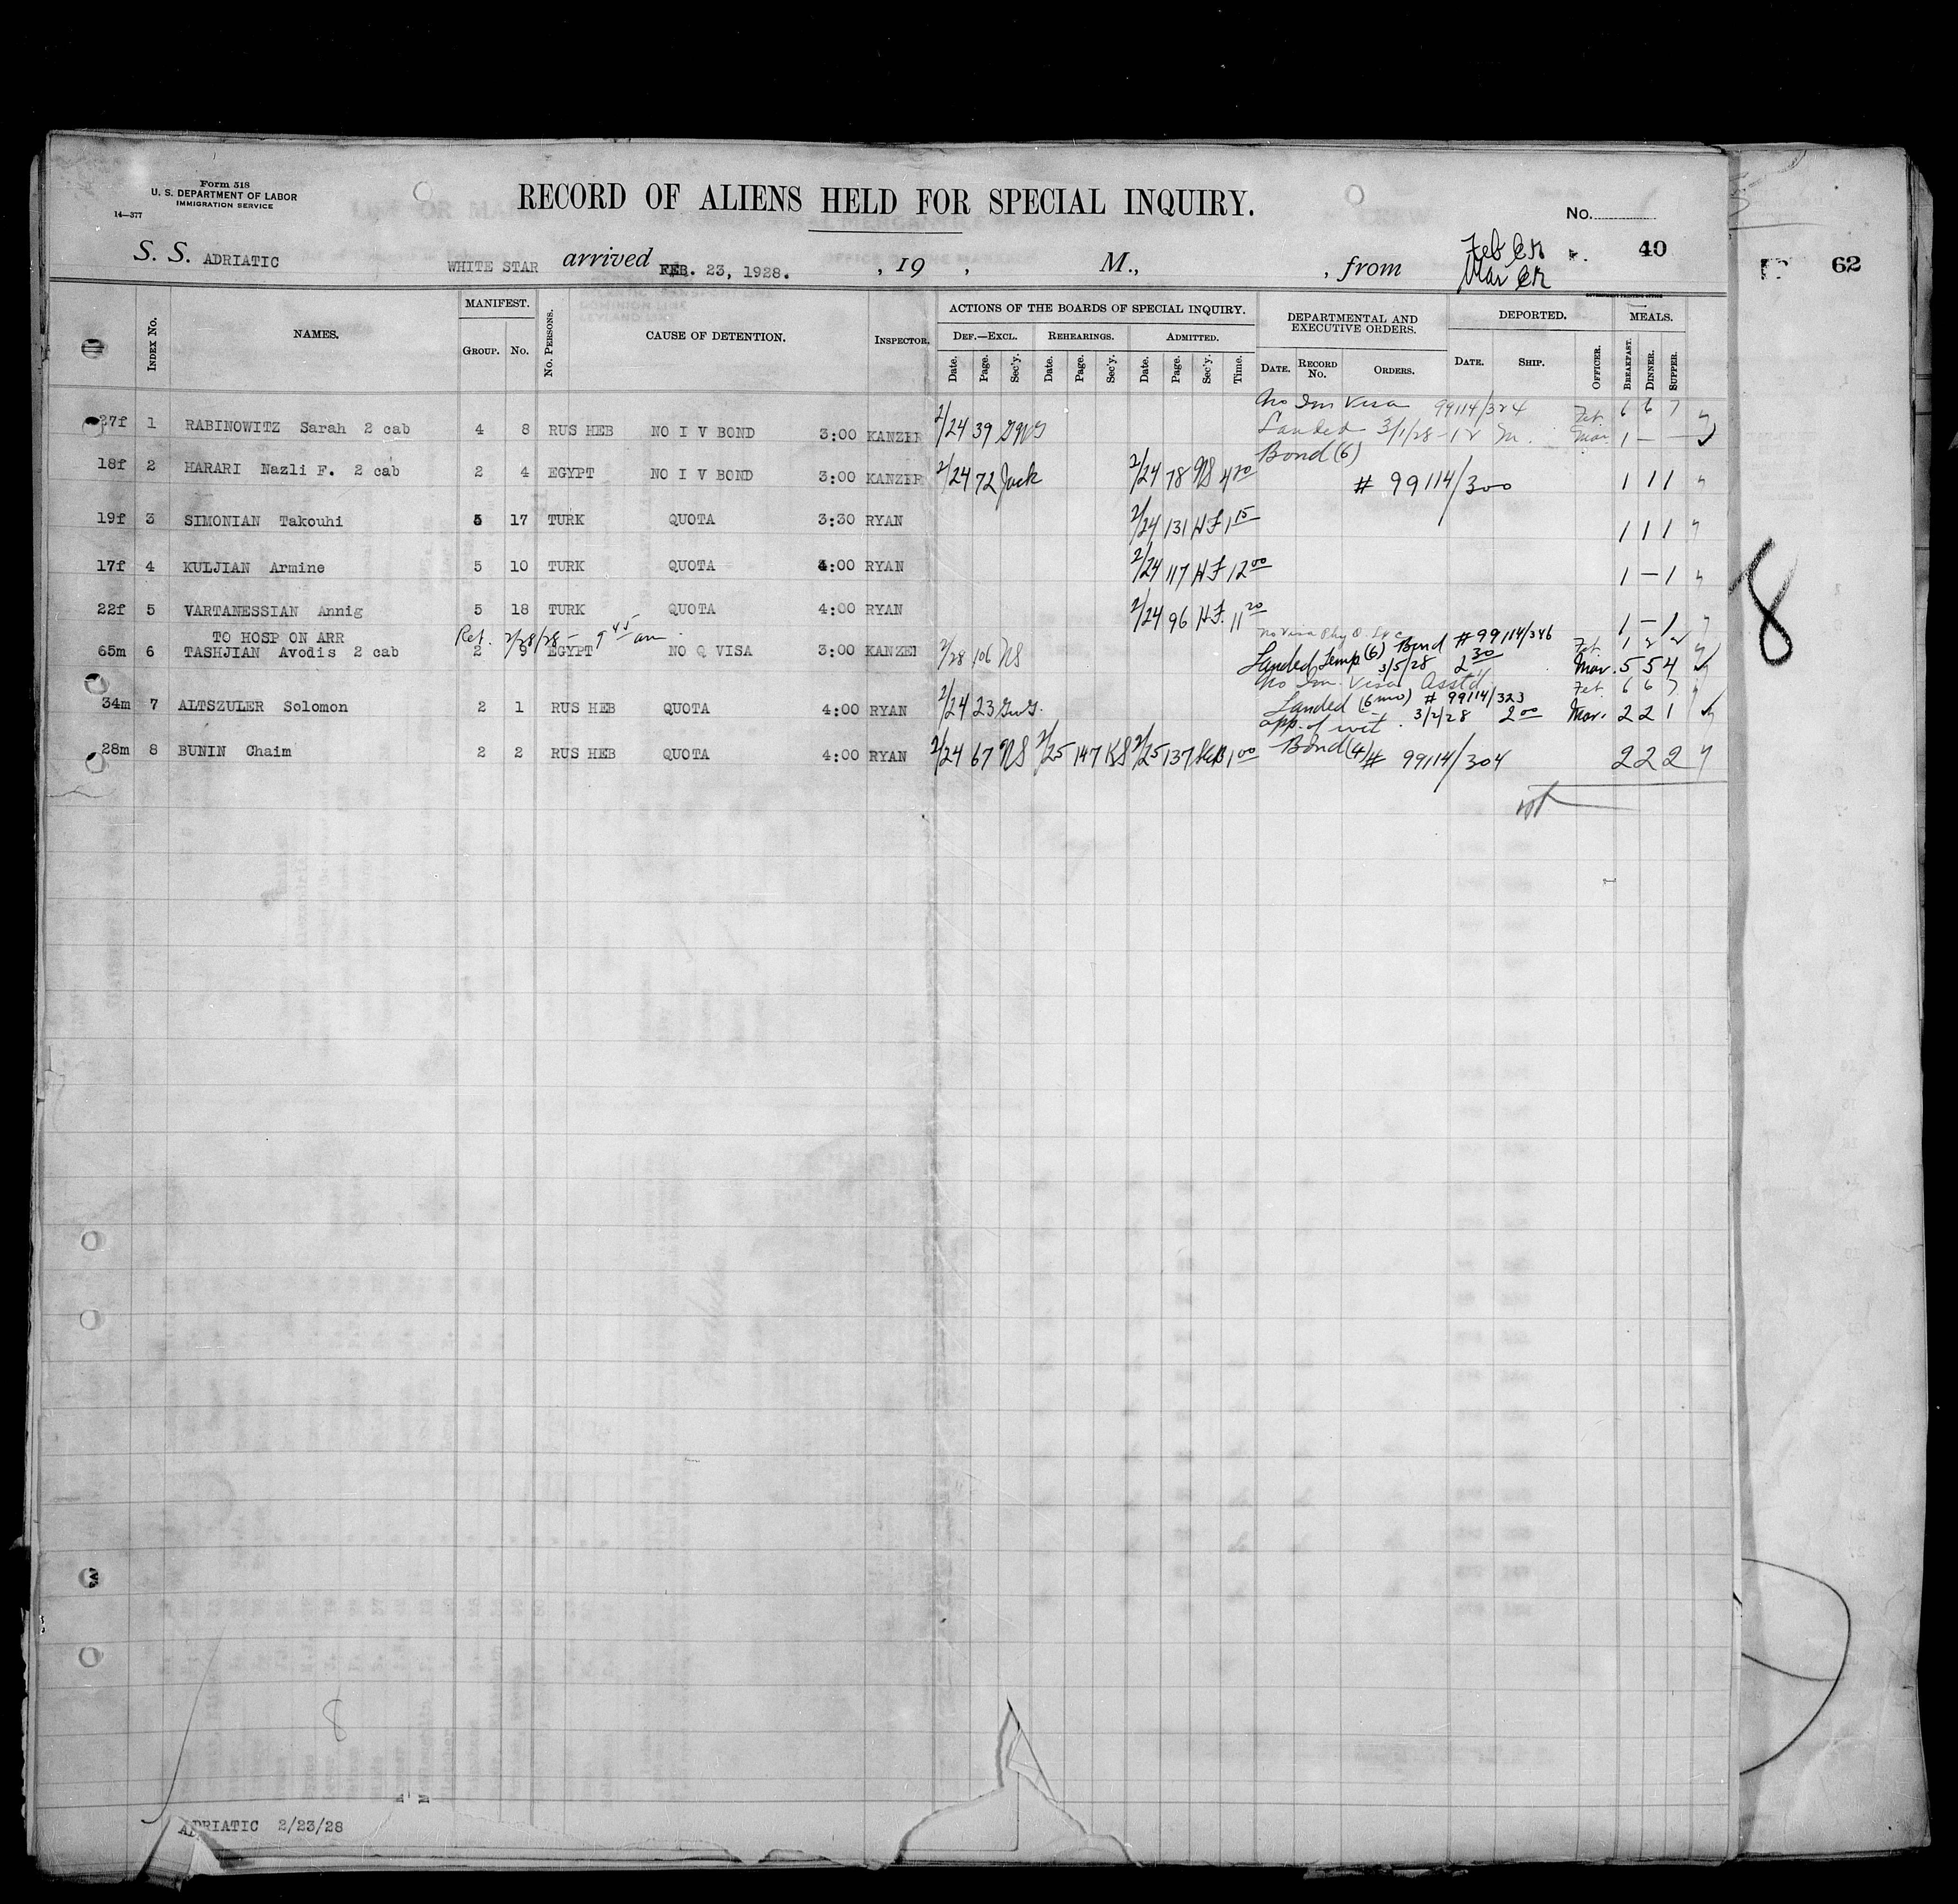 Form 518
U. S. DEPARTMENT OF LABOR
IMMIGRATION SERVICE
14—377
RECORD OF ALIENS HELD FOR SPECIAL INQUIRY.
No.
S. S. ADRIATIC WHITE STAR arrived FEB. 23, 1928. , 19 , M., , from Feb CK 40
Mar CK
62
GOVERNMENT PRINTING OFFICE
INDEX No. NAMES. MANIFEST. GROUP. No. No. PERSONS. CAUSE OF DETENTION. INSPECTOR.
ACTIONS OF THE BOARDS OF SPECIAL INQUIRY.
DEF.—EXCL. REHEARINGS. ADMITTED.
Date. Page. Sec'y. Date. Page. Sec'y. Date. Page. Sec'y. Time.
DEPARTMENTAL AND EXECUTIVE ORDERS. DATE. RECORD No. ORDERS.
DEPORTED. DATE. SHIP. OFFICER.
MEALS. BREAKFAST. DINNER. SUPPER.
No Im Visa 99114/324 Feb. 6 6 7
37f 1 RABINOWITZ Sarah 2 cab 4 8 RUS HEB NO I V BOND 3:00 KANZER 2/24 39 Landed 3/1/28 - 12 M. Mar 1 — —
Bond (6)
18f 2 HARARI Nazli F. 2 cab 2 4 EGYPT NO I V BOND 3:00 KANZER 2/24 72 Jack 2/24 78 NS 4 20 # 99114/300 1 1 1
19f 3 SIMONIAN Takouhi 5 17 TURK QUOTA 3:30 RYAN 2/24 131 HF 1 15 1 1 1
17f 4 KULJIAN Armine 5 10 TURK QUOTA 4:00 RYAN 2/24 117 HF 12 00 1 — 1
22f 5 VARTANESSIAN Annig 5 18 TURK QUOTA 4:00 RYAN 2/24 96 HF. 11 20 1 — 1
TO HOSP ON ARR Ret. 2/28/28 - 9 45 am. No Visa Phy D. Bond # 99114/346 Feb. 1 2 2
65m 6 TASHJIAN Avodis 2 cab 2 9 EGYPT NO Q VISA 3:00 KANZER 2/28 106 NS Landed Temp (6) 3/5/28 2 30 Mar. 5 5 4
No Im. Visa Asst'd Feb. 6 6 7
34m 7 ALTSZULER Solomon 2 1 RUS HEB QUOTA 4:00 RYAN 2/24 23 Landed (6 mo) # 99114/323
app. of wit. 3/2/28 2 00 Mar. 2 2 1
28m 8 BUNIN Chaim 2 2 RUS HEB QUOTA 4:00 RYAN 2/24 67 NS 2/25 147 KS 2/25 137 1 00 Bond (4) # 99114/304 2 2 2
8
8
ADRIATIC 2/23/28